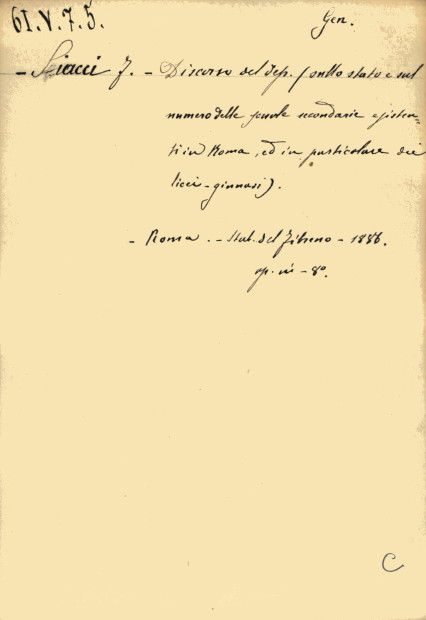 61.V.7.5.
Gen.
- Siacci F. - Discorso del dep. (sullo stato e sul
numero delle scuole secondarie esisten-
ti in Roma, ed in particolare dei
licei-ginnasi).
- Roma. - Stab. del Fibreno - 1886.
op. in - 8º.
C